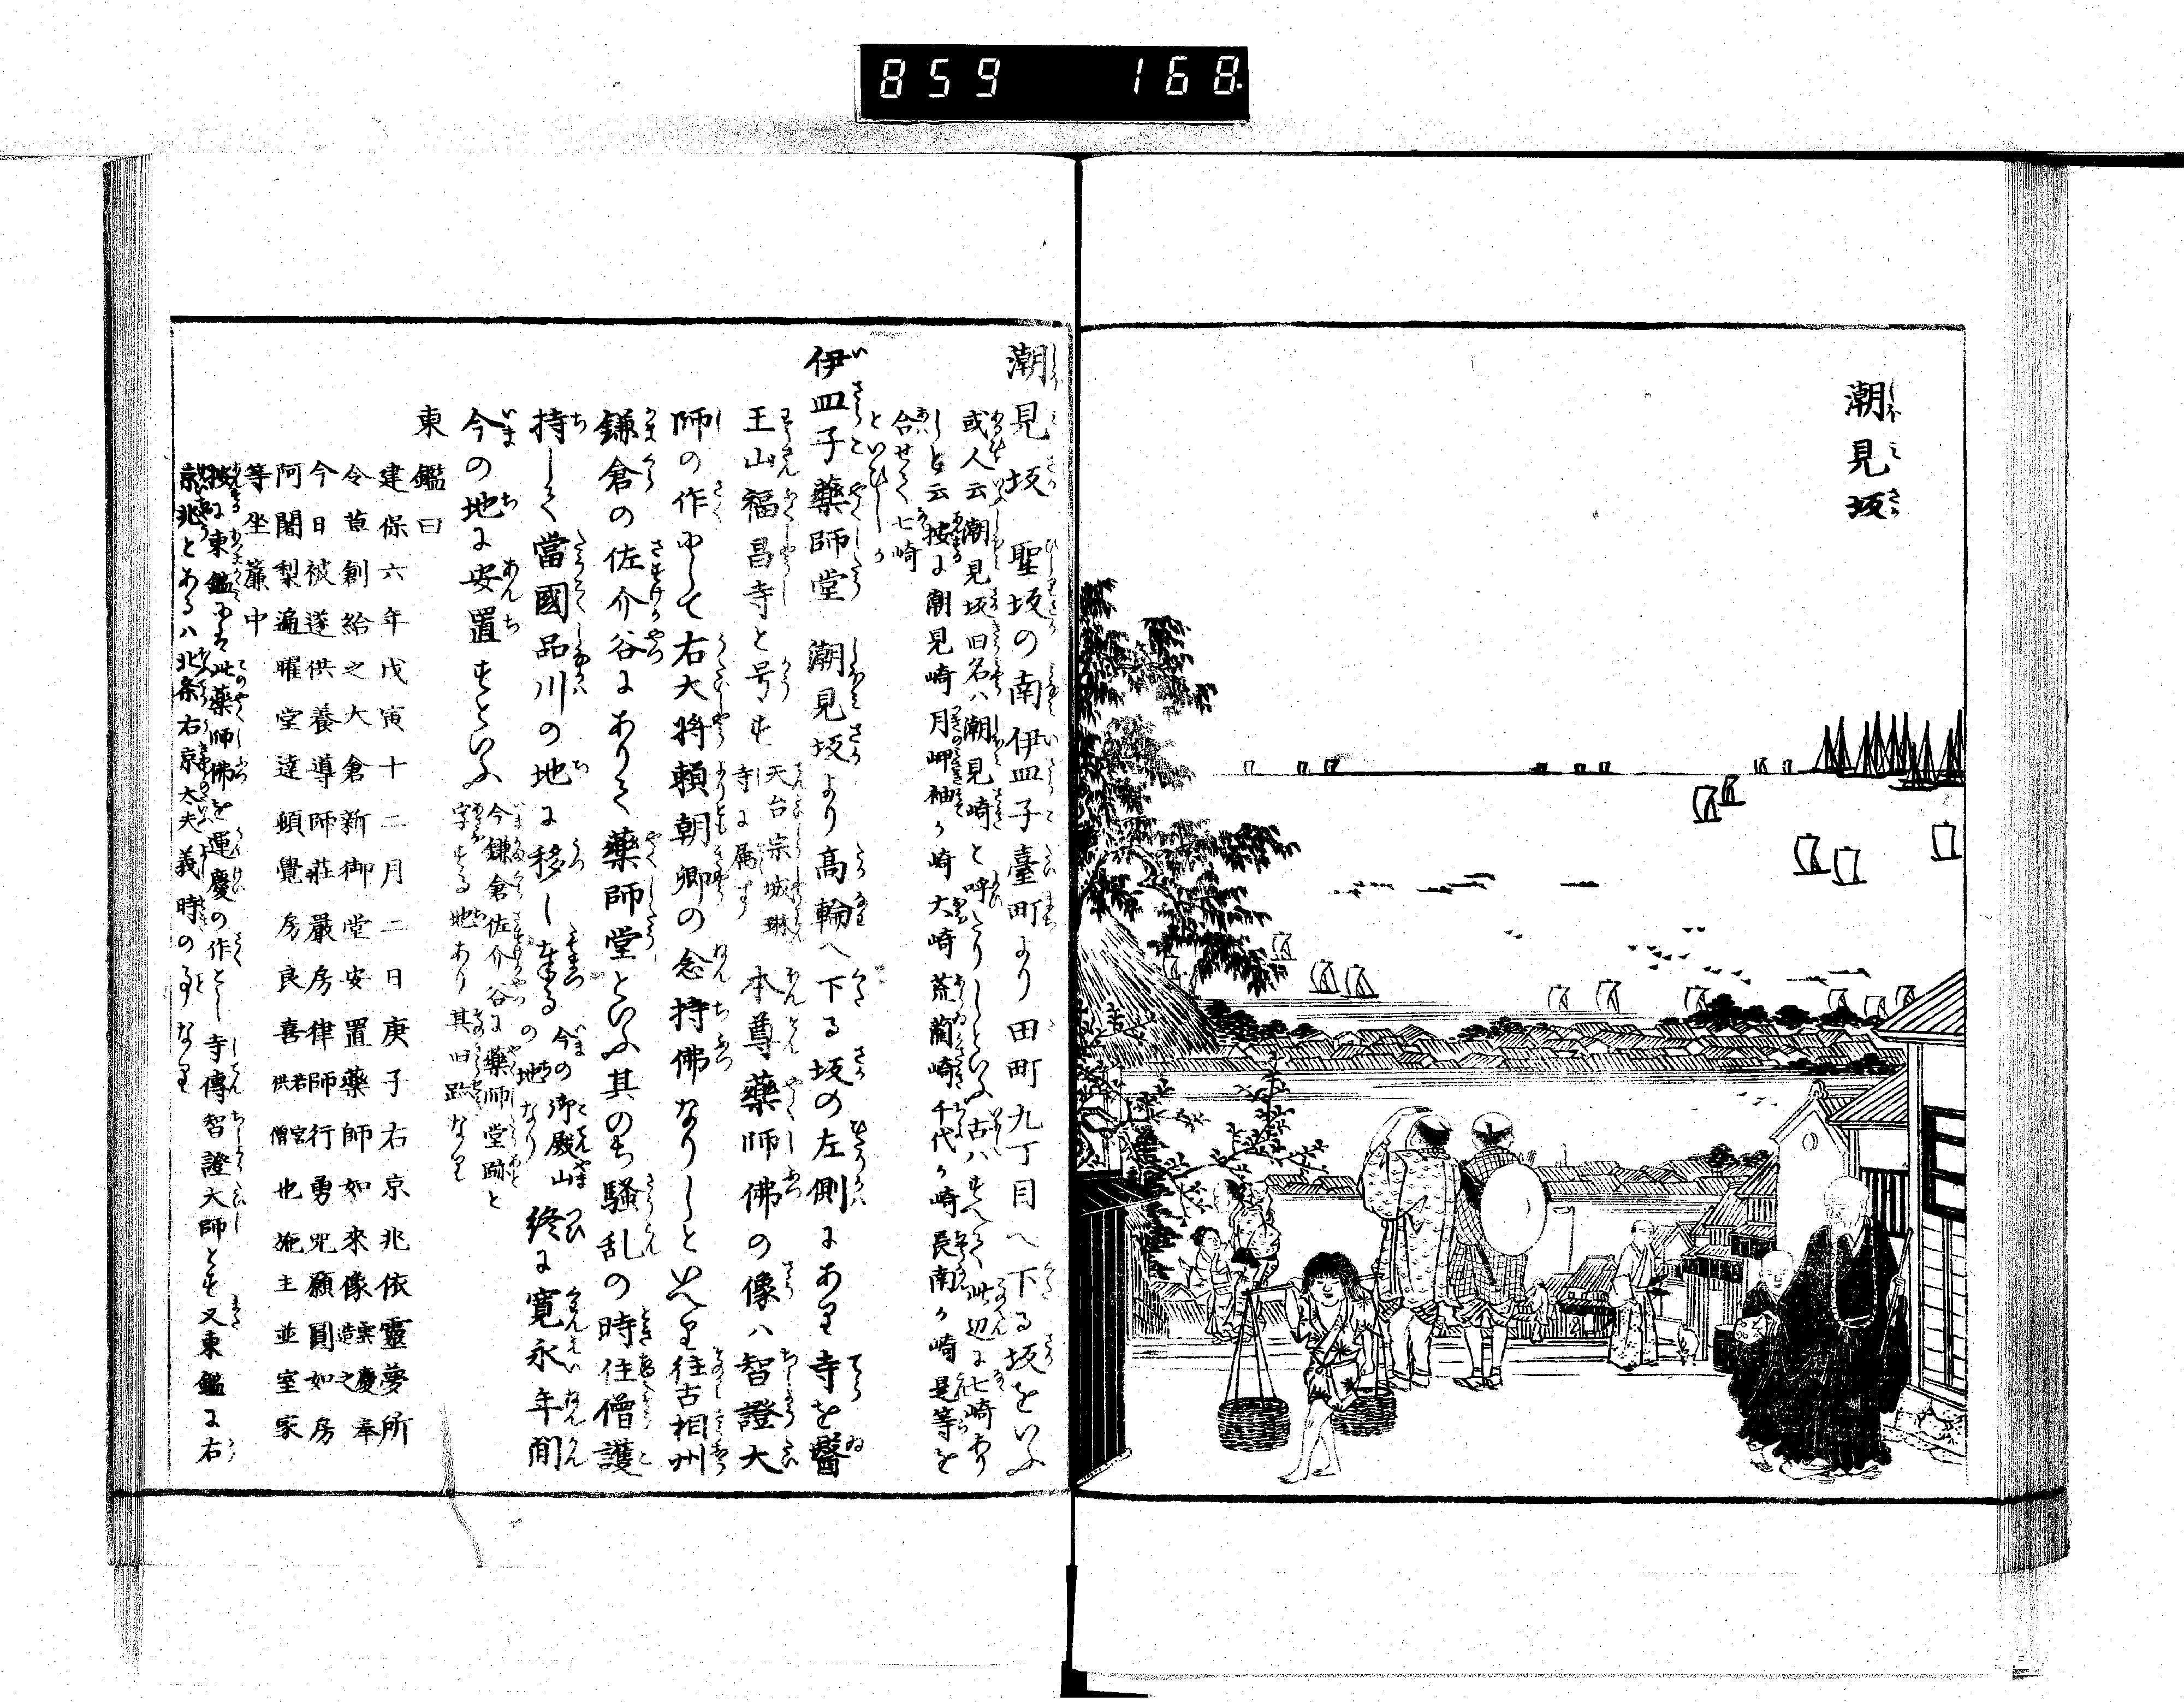 859 168
潮見坂
潮見坂 聖坂の南伊皿子臺町より田町九丁目へ下る坂をいふ
或人云潮見坂旧名ハ潮見崎と呼たりしといふ古ハすべて此辺に七崎あり
しと云按に潮見崎月岬袖ヶ崎大崎荒藺崎千代ヶ崎長南ヶ崎是等を
合せて七崎
といひしか
伊皿子藥師堂 潮見坂より高輪へ下る坂の左側にあり寺を醫
王山福昌寺と号す 天台宗城琳
寺に属す 本尊藥師佛の像ハ智證大
師の作にして右大将頼朝卿の念持佛なりしといへり往古相州
鎌倉の佐介谷にありて藥師堂といふ其のち騒乱の時住僧護
持して當國品川の地に移し奉る 今の御殿山
の地なり 終に寛永年間
今の地に安置すといふ 今鎌倉佐介谷に藥師堂跡と
字する地あり其旧跡なり
東鑑曰
建保六年戊寅十二月二日庚子右京兆依靈夢所
令草創給之大倉新御堂安置藥師如來像雲慶奉
造之
今日被遂供養導師莊嚴房律師行勇咒願圓如房
阿闍梨遍曜堂達頓覺房良喜若宮
供僧也施主並室家
等坐簾中
按に東鑑にも此藥師佛を運慶の作とし寺傳智證大師とす又東鑑に右
京兆とあるハ北条右京太夫義時の事なり